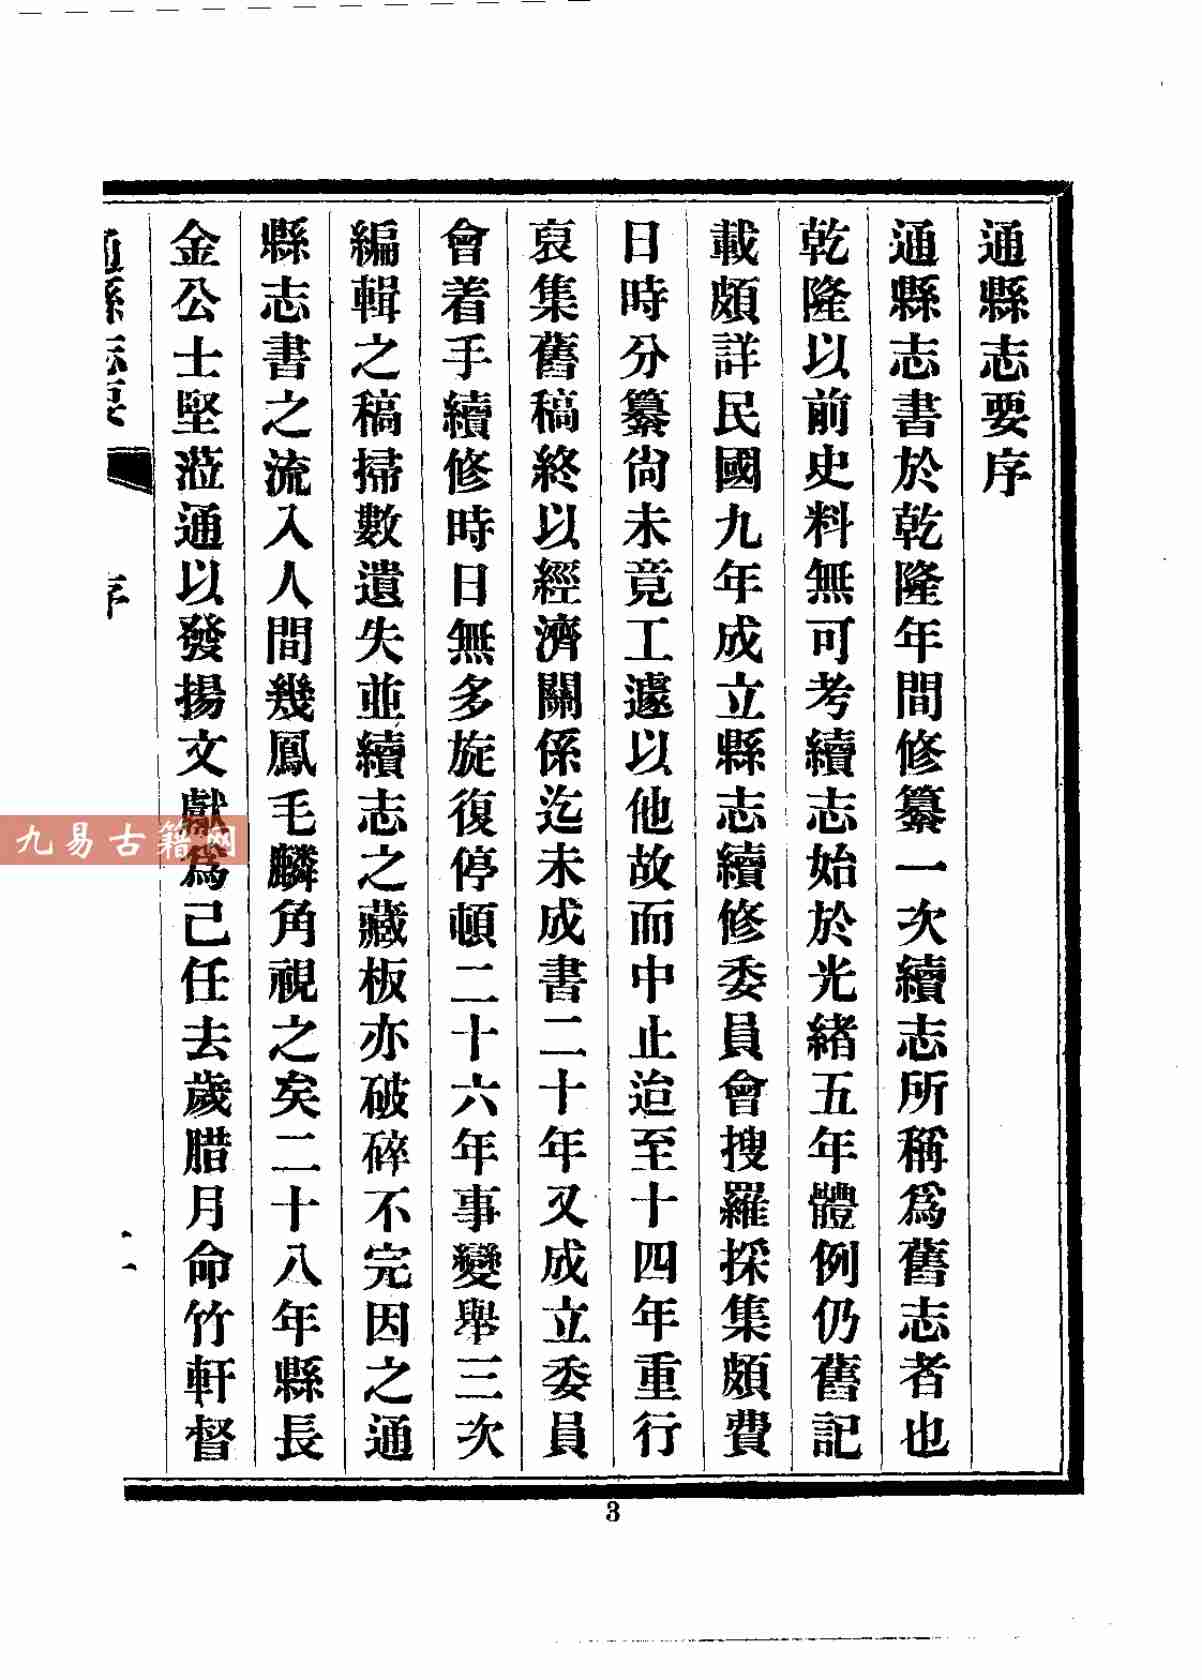 通縣志要序
通縣志書於乾隆年間修纂一次續志所稱爲舊志者也
乾隆以前史料無可考續志始於光緒五年體例仍舊記
載頗詳民國九年成立縣志續修委員會搜羅採集頗費
日時分纂尙未竟工遽以他故而中止迨至十四年重行
裒集舊稿終以經濟關係迄未成書二十年又成立委員
會着手續修時日無多旋復停頓二十六年事變舉三次
編輯之稿掃數遺失並續志之藏板亦破碎不完因之通
縣志書之流入人間幾鳳毛麟角視之矣二十八年縣長
金公士堅蒞通以發揚文獻爲己任去歲腊月命竹軒督
通縣志要 序 一
九易古籍网
3